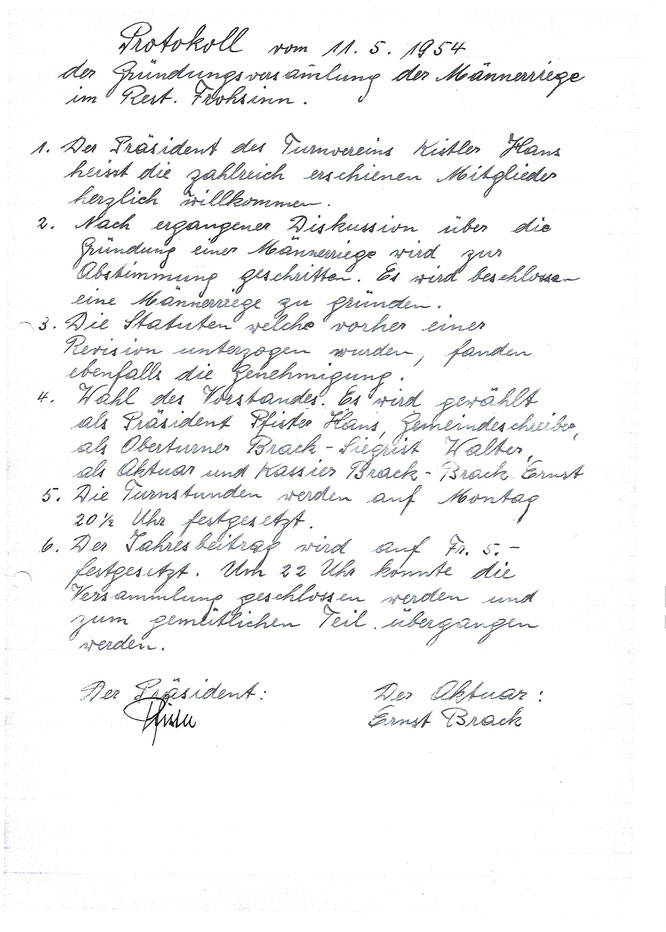 Protokoll vom 11. 5. 1954
der Gründungsversam̄lung der Männerriege
im Rest. Frohsinn.
1. Der Präsident des Turnvereins Kistler Hans
heisst die zahlreich erschienen Mitglieder
herzlich willkommen.
2. Nach ergangener Diskussion über die
Gründung einer Männerriege wird zur
Abstimmung geschritten. Es wird beschlossen
eine Männerriege zu gründen.
3. Die Statuten welche vorher einer
Revision unterzogen wurden, fanden
ebenfalls die Genehmigung.
4. Wahl des Vorstandes. Es wird gewählt
als Präsident Pfister Hans, Gemeindeschreiber,
als Oberturner Brack-Siegrist Walter,
als Aktuar und Kassier Brack-Brack Ernst
5. Die Turnstunden werden auf Montag
20½ Uhr festgesetzt.
6. Der Jahresbeitrag wird auf Fr. 5.-
festgesetzt. Um 22 Uhr konnte die
Versammlung geschlossen werden und
zum gemütlichen Teil übergangen
werden.
Der Präsident: Der Aktuar:
Pfister Ernst Brack